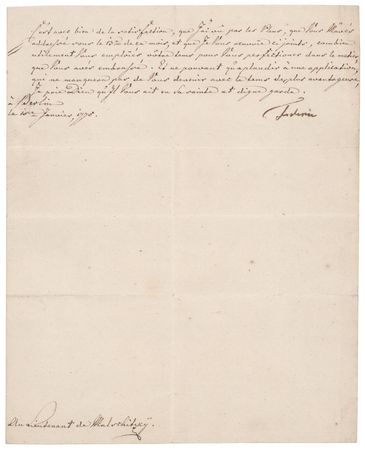 C'est avec bien de la satisfaction, que j'ai vu par les Plans, que Vous M'avés
adressé sous le 13me de ce mois, et que Je Vous renvoie ci joints, combien
utilement Vous emploiés vôtre tems pour Vous perfectioner dans le metier,
que Vous avés embrassé. Et ne pouvant qu'aplaudir à une application,
qui ne manquera pas de Vous devenir avec le tems des plus avantageuse,
Je prie Dieu qu'Il Vous ait en Sa sainte et digne garde.
à Berlin
le 15me Janvier, 1778.
Federic
Au Lieutenant de Malschitzky.